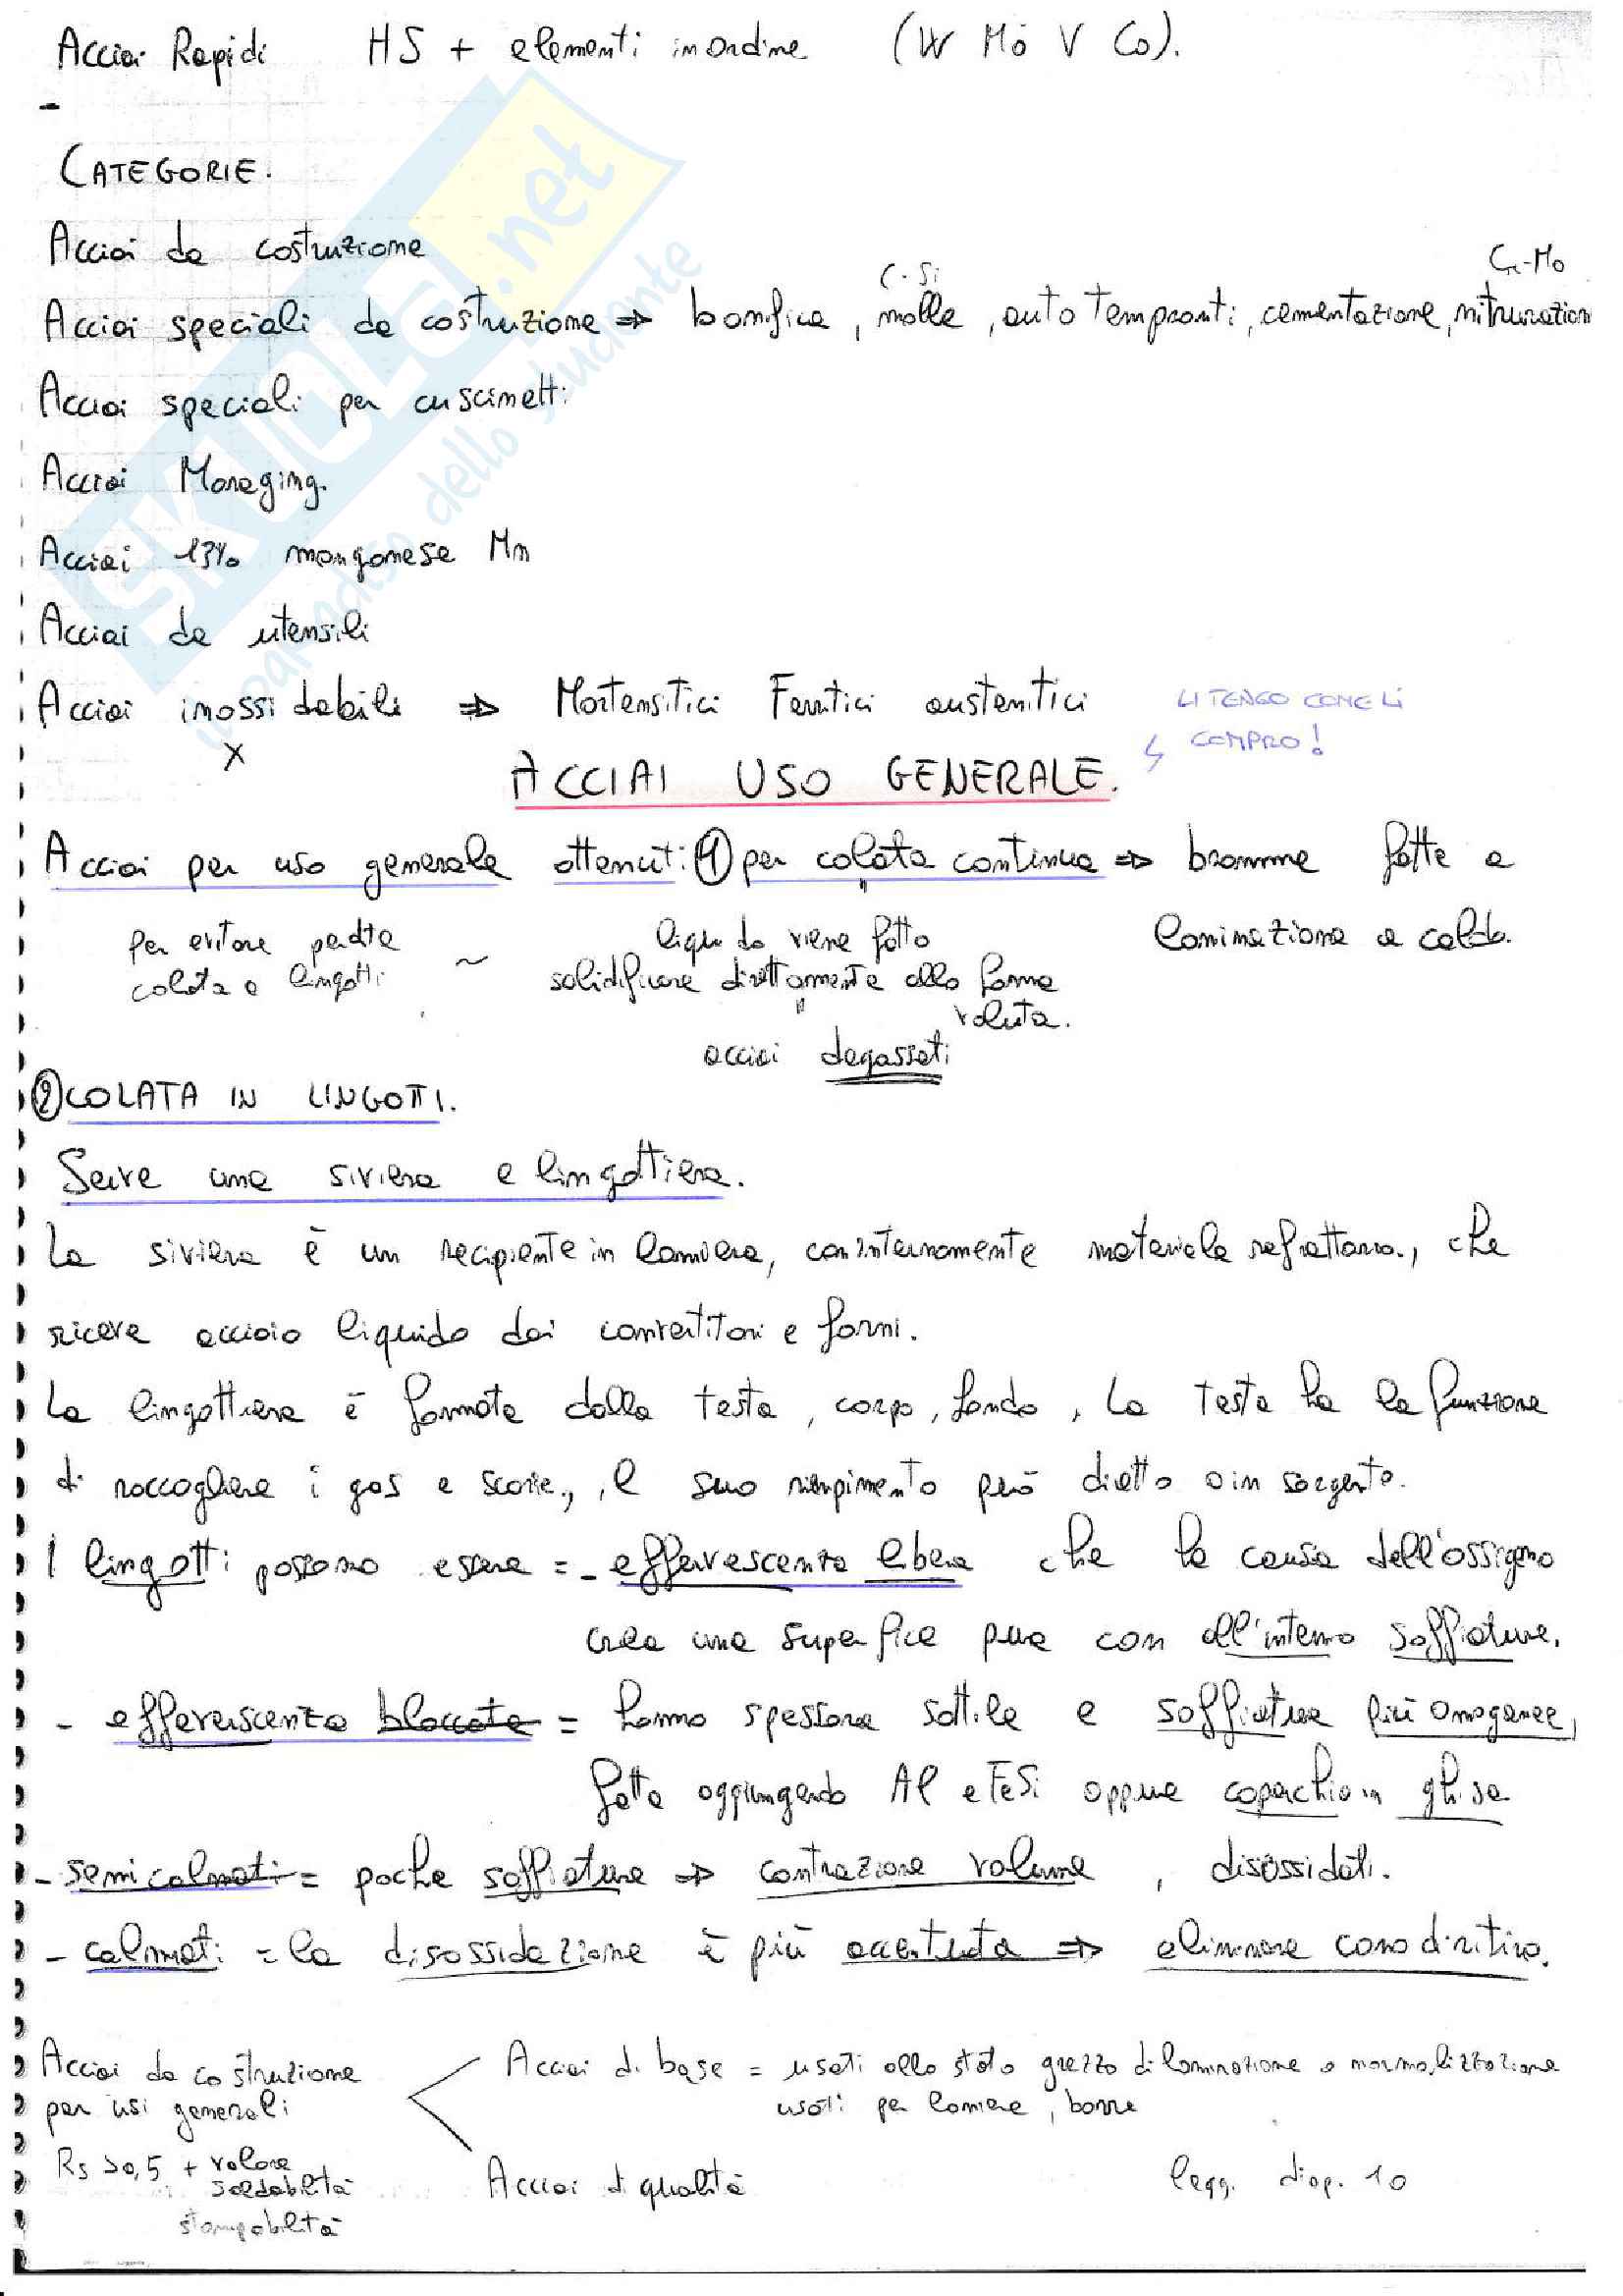 Acciai Rapidi HS + elementi in ordine (W Mo V Co).
CATEGORIE.
Acciai da costruzione
C-Si
Cr-Mo
Acciai speciali da costruzione => bonifica, molle, auto tempranti, cementazione, nitrurazion
Acciai speciali per cuscinetti
Acciai Maraging.
Acciai 13% manganese Mn
Acciai da utensili
Acciai inossidabili => Martensitici Ferritici austenitici
LI TENGO COME LI
COMPRO!
X
ACCIAI USO GENERALE.
Acciai per uso generale ottenuti: ① per colata continua => bramme fatte a
laminazione a caldo.
Per evitare perdite
colata a lingotti
~
liquido viene fatto
solidificare direttamente alla forma
voluta.
acciai degassati
② COLATA IN LINGOTTI.
Serve una siviera e lingottiera.
La siviera è un recipiente in lamiera, con internamente materiale refrattario, che
riceve acciaio liquido dai convertitori e forni.
La lingottiera è formata dalla testa, corpo, fondo, La testa ha la funzione
di raccogliere i gas e scorie, il suo riempimento può diretto o in sorgente.
I lingotti possono essere = - effervescenza libera che ha causa dell'ossigeno
crea una superfice pura con all'interno soffiature.
- effervescenza bloccata = hanno spessore sottile e soffiature più omogenee,
fatte aggiungendo Al e FeSi oppure coperchio in ghisa
- semicalmati = poche soffiature => contrazione volume, disossidati.
- calmati = la disossidazione è più accentuata => eliminare cono di ritiro.
Acciai da costruzione
per usi generali
Rs >0,5 + valore
saldabilità
stampabilità
Acciai di base = usati allo stato grezzo di laminazione o normalizzazione
usati per lamiere, barre
Acciai di qualità
legg. diap. 10
SKUOLA.net
il paradiso dello studente